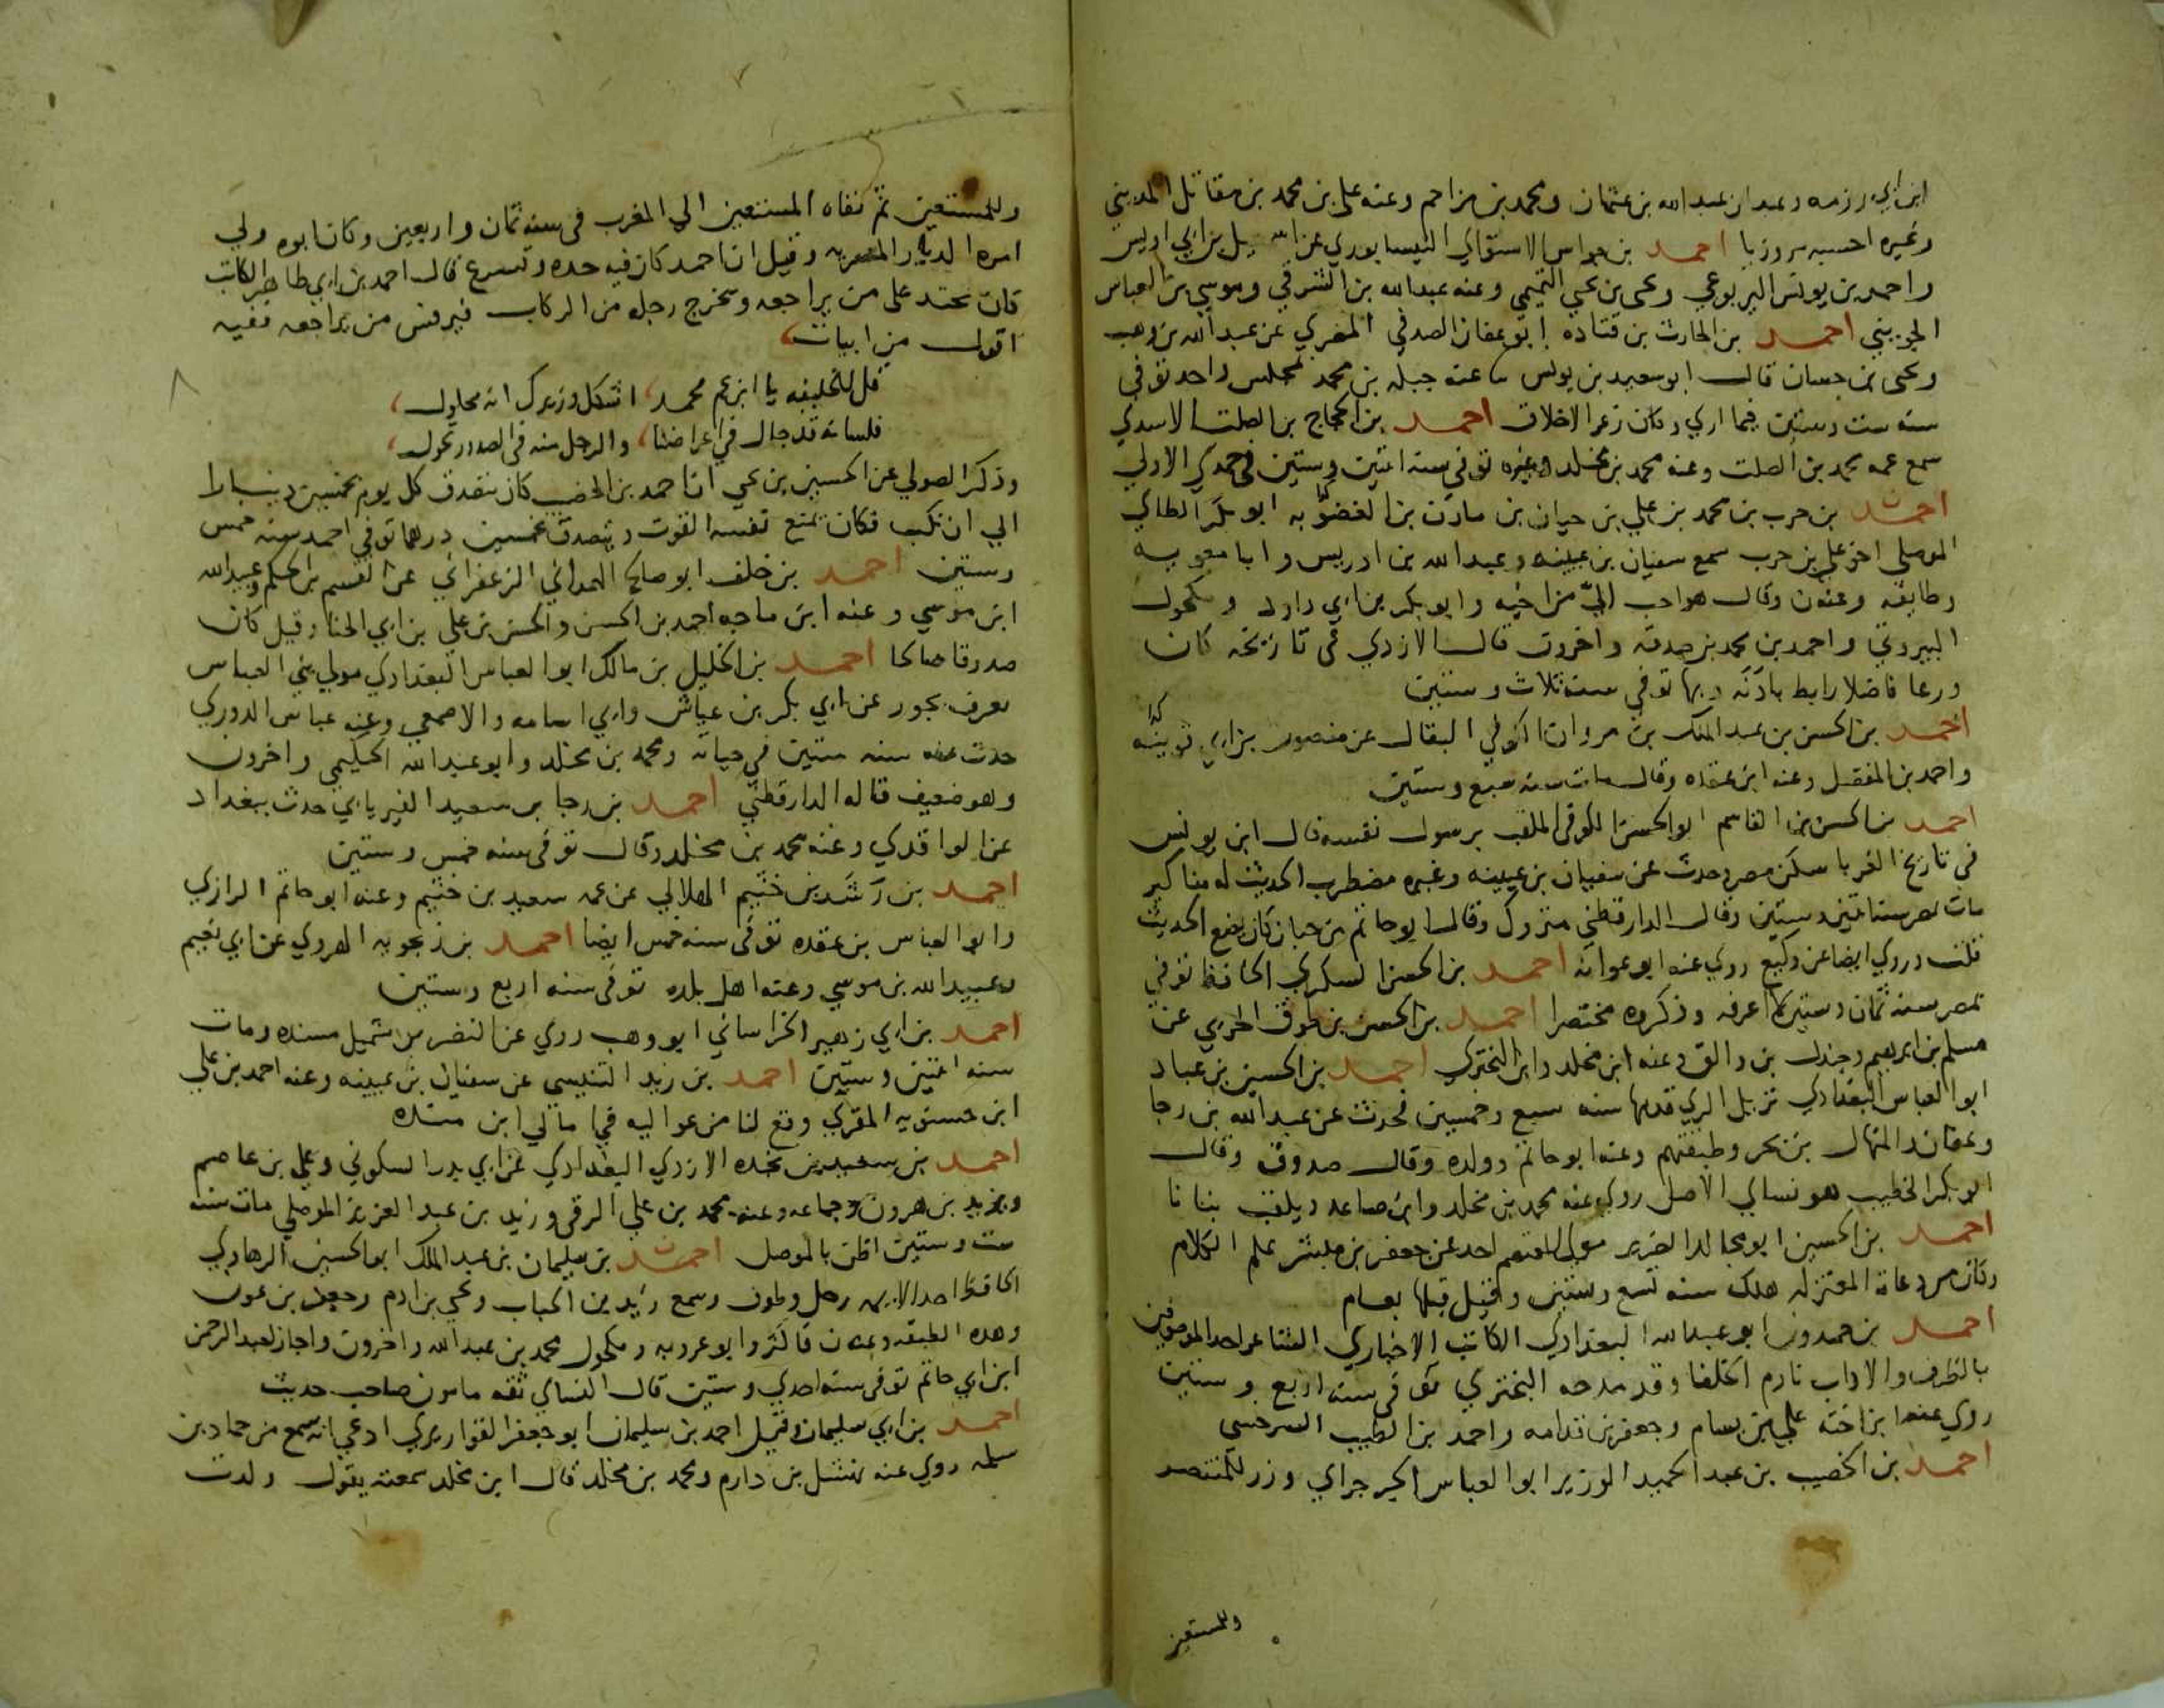 ابن ابي رزمه وعبدان عبد الله بن عثمان ومحمد بن مزاحم وعنه علي بن محمد بن مقاتل المديني
وغيره احسبه مروزيا احمد بن جواس الاستوائي النيسابوري عن اسمعيل بن ابي اويس
واحمد بن يونس اليربوعي ويحيى بن يحيى التميمي وعنه عبد الله بن الشرقي وموسى بن العباس
الجويني احمد بن الحارث بن قتاده ابو عفان الصدفي المصري عن عبد الله بن وهب
ويحيى بن حسان قال ابو سعيد بن يونس ساعنه جبله بن محمد بمجلس واحد توفي
سنه ست وستين فيما اري وكان زعر الاخلاق احمد بن الحجاج بن الصلت الاسدي
سمع عمه محمد بن الصلت وعنه محمد بن مخلد وغيره توفي سنه اثنين وستين في جمدي الاولي
احمد بن حرب بن محمد بن علي بن حيان بن مازن بن الغضوبه ابو بكر الطائي
الموصلي اخو علي بن حرب سمع سفيان بن عيينه وعبد الله بن ادريس وابا معويه
وطايفه وعنه ن وقال هو احب الي من اخيه وابو بكر بن ابي داود ومكحول
البيروتي واحمد بن محمد بن صدقه واخرون قال الازدي في تاريخه كان
ورعا فاضلا رابط باذنه وبها توفي سنه ثلاث وستين
احمد بن الحسن بن عبد الملك بن مروان الكوفي البقال عن منصور بن ابي نويره
واحمد بن المفضل وعنه ابن عقده وقال مات سنه سبع وستين
احمد بن الحسن بن القاسم ابو الحسن الكوفي الملقب برسول نفسه قال ابن يونس
في تاريخ الغربا سكن مصر وحدث عن سفيان بن عيينه وغيره مضطرب الحديث له مناكير
مات بمصر سنه اثنين وستين وقال الدارقطني متروك وقال ابو حاتم بن حبان كان يضع الحديث
قلت وروي ايضا عن وكيع روي عنه ابو عوانه احمد بن الحسن السكري الحافظ توفي
بمصر سنه ثمان وستين كذا اعرفه وذكروه مختصرا احمد بن الحسن بن طوق الحربي عن
مسلم بن ابرهيم وجندل بن والق وعنه ابن مخلد وابن البختري احمد بن الحسين بن عباد
ابو العباس البغدادي نزيل الري قدمها سنه سبع وخمسين فحدث عن عبد الله بن رجا
وعفان والمنهال بن بحر وطبقتهم وعنه ابو حاتم وولده وقال صدوق وقال
ابو بكر الخطيب هو نسائي الاصل روي عنه محمد بن مخلد وابن صاعد ويلقب بنانا
احمد بن الحسين ابو مجالد الضرير مولي المعتصم اخذ عن جعفر بن مبشر علم الكلام
وكان من دعاه المعتزله هلك سنه تسع وستين وقيل قبلها بعام
احمد بن حمدون ابو عبد الله البغدادي الكاتب الاخباري الشاعر احد الموصوفين
بالظرف والاداب نادم الخلفا وقد مدحه البختري توفي سنه اربع وستين
روي عنه ابن اخته علي بن بسام وجعفر بن قدامه واحمد بن الطيب السرخسي
احمد بن الخصيب بن عبد الحميد الوزير ابو العباس الجرجراي وزر للمنتصر
وللمستعين
وللمستعين ثم نفاه المستعين الي المغرب في سنه ثمان واربعين وكان ابوه ولي
امره الديار المصريه وقيل ان احمد كان فيه حده وتسرع قال احمد بن ابي طاهر الكاتب
كان يحتد علي من يراجعه ويخرج رجله من الركاب فيرفس من يراجعه ففيه
اقول من ابيات
قل للخليفه يا ابن عم محمد اشكل وزيرك انه محلول
فلسانه قد جال في اعراضنا والرجل منه في الصدور تجول
وذكر الصولي عن الحسين بن يحيى ان احمد بن الخصيب كان يتصدق كل يوم بخمسين دينارا
الي ان نكب فكان يمنع نفسه القوت ويتصدق بخمسين درهما توفي احمد سنه خمس
وستين احمد بن خلف ابو صالح الهمداني الزعفراني عن القسم بن الحكم وعبيد الله
ابن موسى وعنه ابن ماجه احمد بن الحسن والحسن بن علي بن ابي الحنا وقيل كان
صدوقا صالحا احمد بن الخليل بن مالك ابو العباس البغدادي مولي بني العباس
يعرف بجور عن ابي بكر بن عياش وابي اسامه والاصمعي وعنه عباس الدوري
حدث عنه سنه ستين في حياته ومحمد بن مخلد وابو عبد الله الحكيمي واخرون
وهو ضعيف قاله الدارقطني احمد بن رجا بن سعيد الفيريابي حدث ببغداد
عن الواقدي وعنه محمد بن مخلد وقال توفي سنه خمس وستين
احمد بن رشد بن خثيم الهلالي عن عمه سعيد بن خثيم وعنه ابو حاتم الرازي
وابو العباس بن عقده توفي سنه خمس ايضا احمد بن زنجويه الهروي عن ابي نعيم
وعبيد الله بن موسى وعنه اهل بلده توفي سنه اربع وستين
احمد بن ابي زهير الخراساني ابو وهب روي عن النضر بن شميل مسنده ومات
سنه اثنين وستين احمد بن زيد التنيسي عن سفيان بن عيينه وعنه احمد بن علي
ابن حسنويه المقري وقع لنا من عواليه في امالي ابن منده
احمد بن سعيد بن نجده الازدي البغدادي عن ابي بدر السكوني وعلي بن عاصم
ويزيد بن هرون وجماعه وعنه محمد بن علي الرقي وزيد بن عبد العزيز الموصلي مات سنه
ست وستين اظن بالموصل احمد بن سليمان بن عبد الملك ابو الحسين الرهاوي
الحافظ احد الايمه رحل وطوف وسمع زيد بن الحباب ويحيى بن ادم وجعفر بن عون
وهذه الطبقه وعنه ن فاكثر وابو عروبه ومكحول محمد بن عبد الله واخرون واجاز لعبد الرحمن
ابن ابي حاتم توفي سنه احدي وستين قال النسائي ثقه مامون صاحب حديث
احمد بن ابي سليمان وقيل احمد بن سليمان ابو جعفر القواريري ادعي انه سمع من حماد بن
سلمه روي عنه نهشل بن دارم ومحمد بن مخلد قال ابن مخلد سمعته يقول ولدت